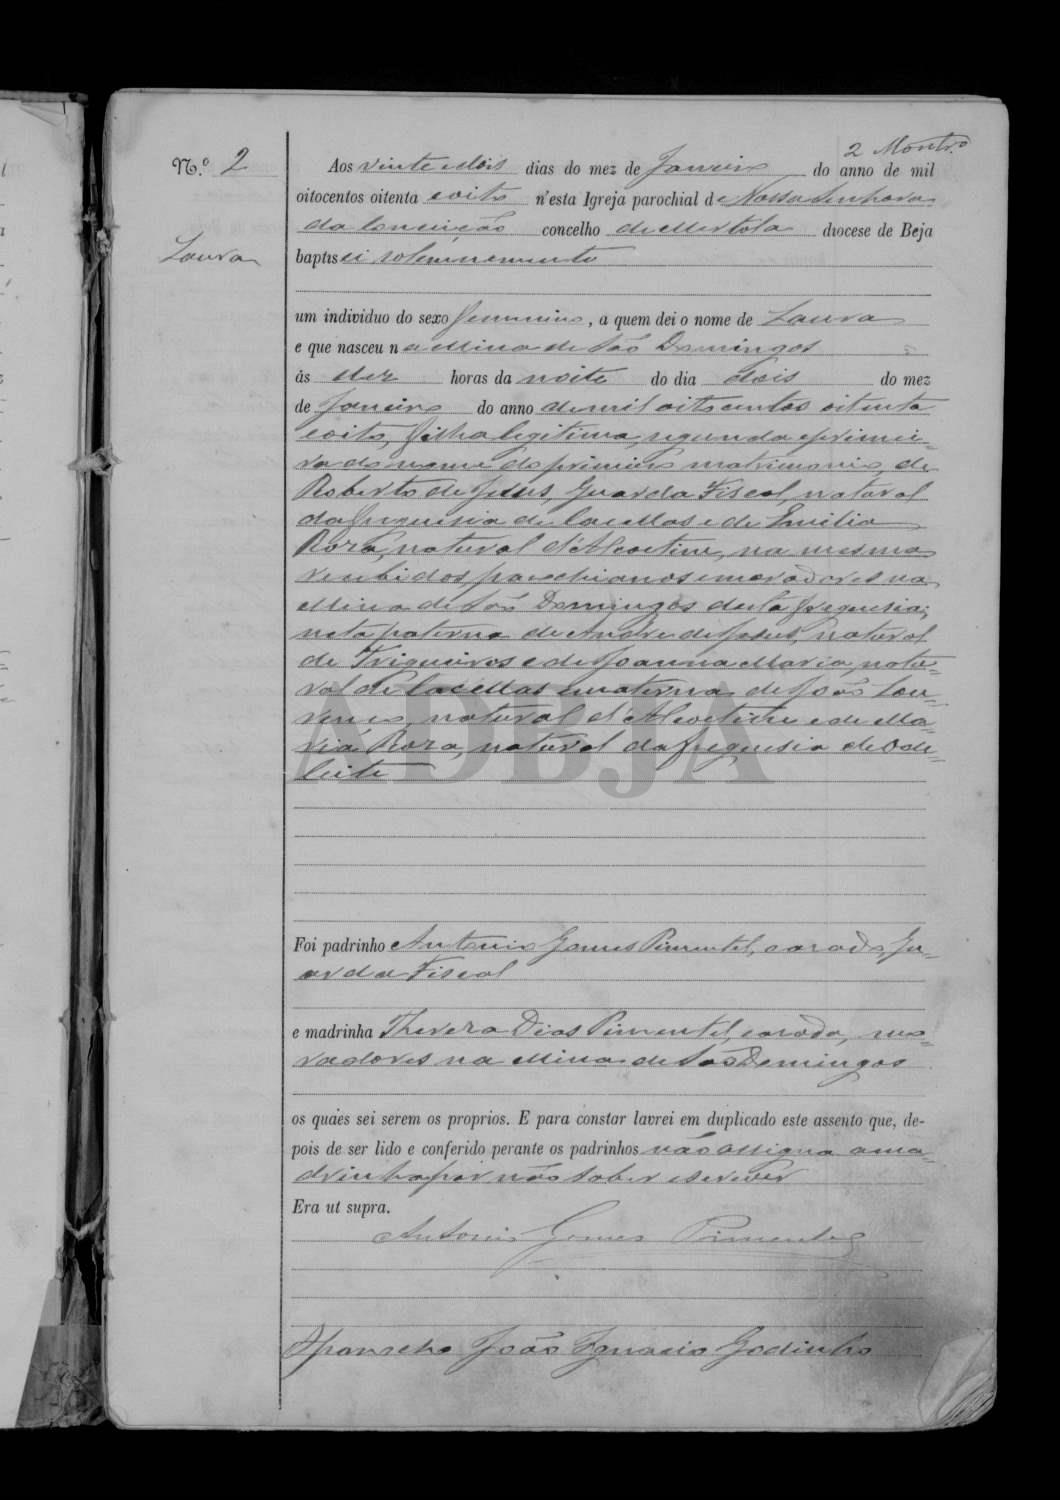 2 Montro
N.º 2
Aos vinte e dois dias do mez de Janeiro do anno de mil
oitocentos oitenta e oito n'esta Igreja parochial de Nossa Senhora
da Conceição concelho de Mertola diocese de Beja
Laura
baptisei solemnemente
um individuo do sexo femenino, a quem dei o nome de Laura
e que nasceu na Mina de São Domingos
ás dez horas da noite do dia dois do mez
de Janeiro do anno de mil oitocentos oitenta
e oito, filha legitima, segunda e primei=
ra do nome do primeiro matrimonio, de
Roberto de Jesus, Guarda Fiscal, natural
da freguesia de Cacellas e de Emilia
Roza, natural d'Alcoutim, na mesma
recebidos, parochianos e moradores na
Mina de São Domingos desta freguesia;
neta paterna de André de Jesus, natural
de Trigueiros e de Joanna Maria, natu=
ral de Cacellas e materna de João Lou=
renço, natural d'Alcoutim e de Ma=
ria Roza, natural da freguesia de Ode=
leite
ADBJA
Foi padrinho Antonio Gomes Pimentel, casado, Gu=
arda Fiscal
e madrinha Thereza Dias Pimentel, casada, mo=
radores na Mina de São Domingos
os quaes sei serem os proprios. E para constar lavrei em duplicado este assento que, de-
pois de ser lido e conferido perante os padrinhos não assigna a ma=
drinha por não saber escrever
Era ut supra.
Antonio Gomes Pimentel
O parocho João Ignacio Godinho